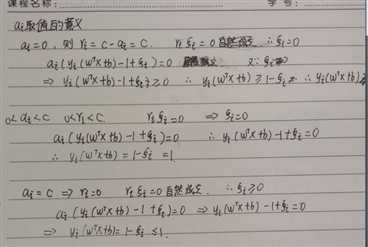 课程名称:
学号:
αi取值的意义
αi=0, 则 ri=C-αi=C. riξi=0 自然成立 ∴ξi=0
αi(yi(wᵀx+b)-1+ξi)=0
⇒ yi(wᵀx+b)-1+ξi≥0 ∴ yi(wᵀx+b)≥1-ξi ∴ yi(wᵀx+b)≥
0<αi<C 0<ri<C. riξi=0 ⇒ ξi=0
αi(yi(wᵀx+b)-1+ξi)=0 ∴ yi(wᵀx+b)-1+ξi=0
∴ yi(wᵀx+b)=1-ξi=1.
αi=C ⇒ ri=0 riξi=0 自然成立. ∴ξi≥0
αi(yi(wᵀx+b)-1+ξi)=0 ⇒ yi(wᵀx+b)-1+ξi=0
⇒ yi(wᵀx+b)=1-ξi≤1.